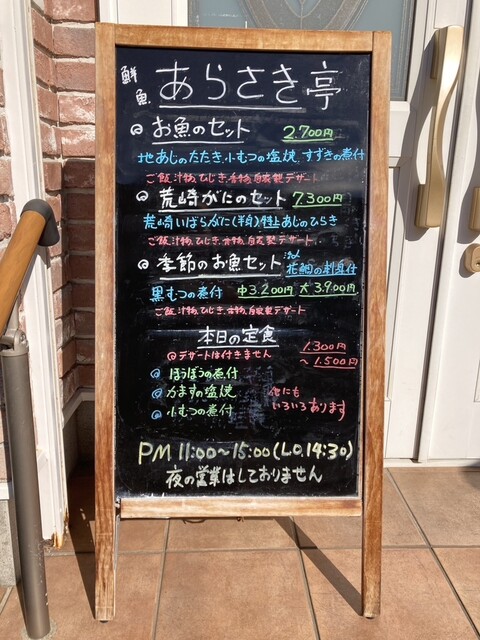 鮮魚 あらさき亭
◎ お魚のセット 2.700円
地あじのたたき、小むつの塩焼、すずきの煮付
ご飯、汁物、ひじき、香物、自家製デザート
◎ 荒崎がにのセット 7300円
荒崎いばらがに(半身)特上あじのひらき
ご飯、汁物、ひじき、香物、自家製デザート
◎ 季節のお魚セット 花鯛の刺身付
黒むつの煮付 中3.200円 大3.900円
ご飯、汁物、ひじき、香物、自家製デザート
本日の定食
◎デザートは付きません 1.300円
～1.500円
◎ ほうぼうの煮付
◎ かますの塩焼 他にも
◎ 小むつの煮付 いろいろあります
PM 11:00～15:00(L.O.14:30)
夜の営業はしておりません